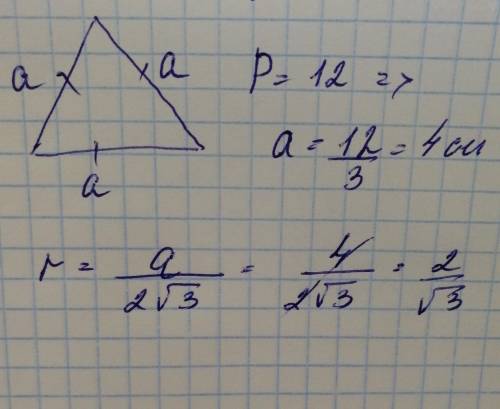 a a
a
P = 12 =>
a = 12/3 = 4 см
r = a/(2√3) = 4/(2√3) = 2/√3